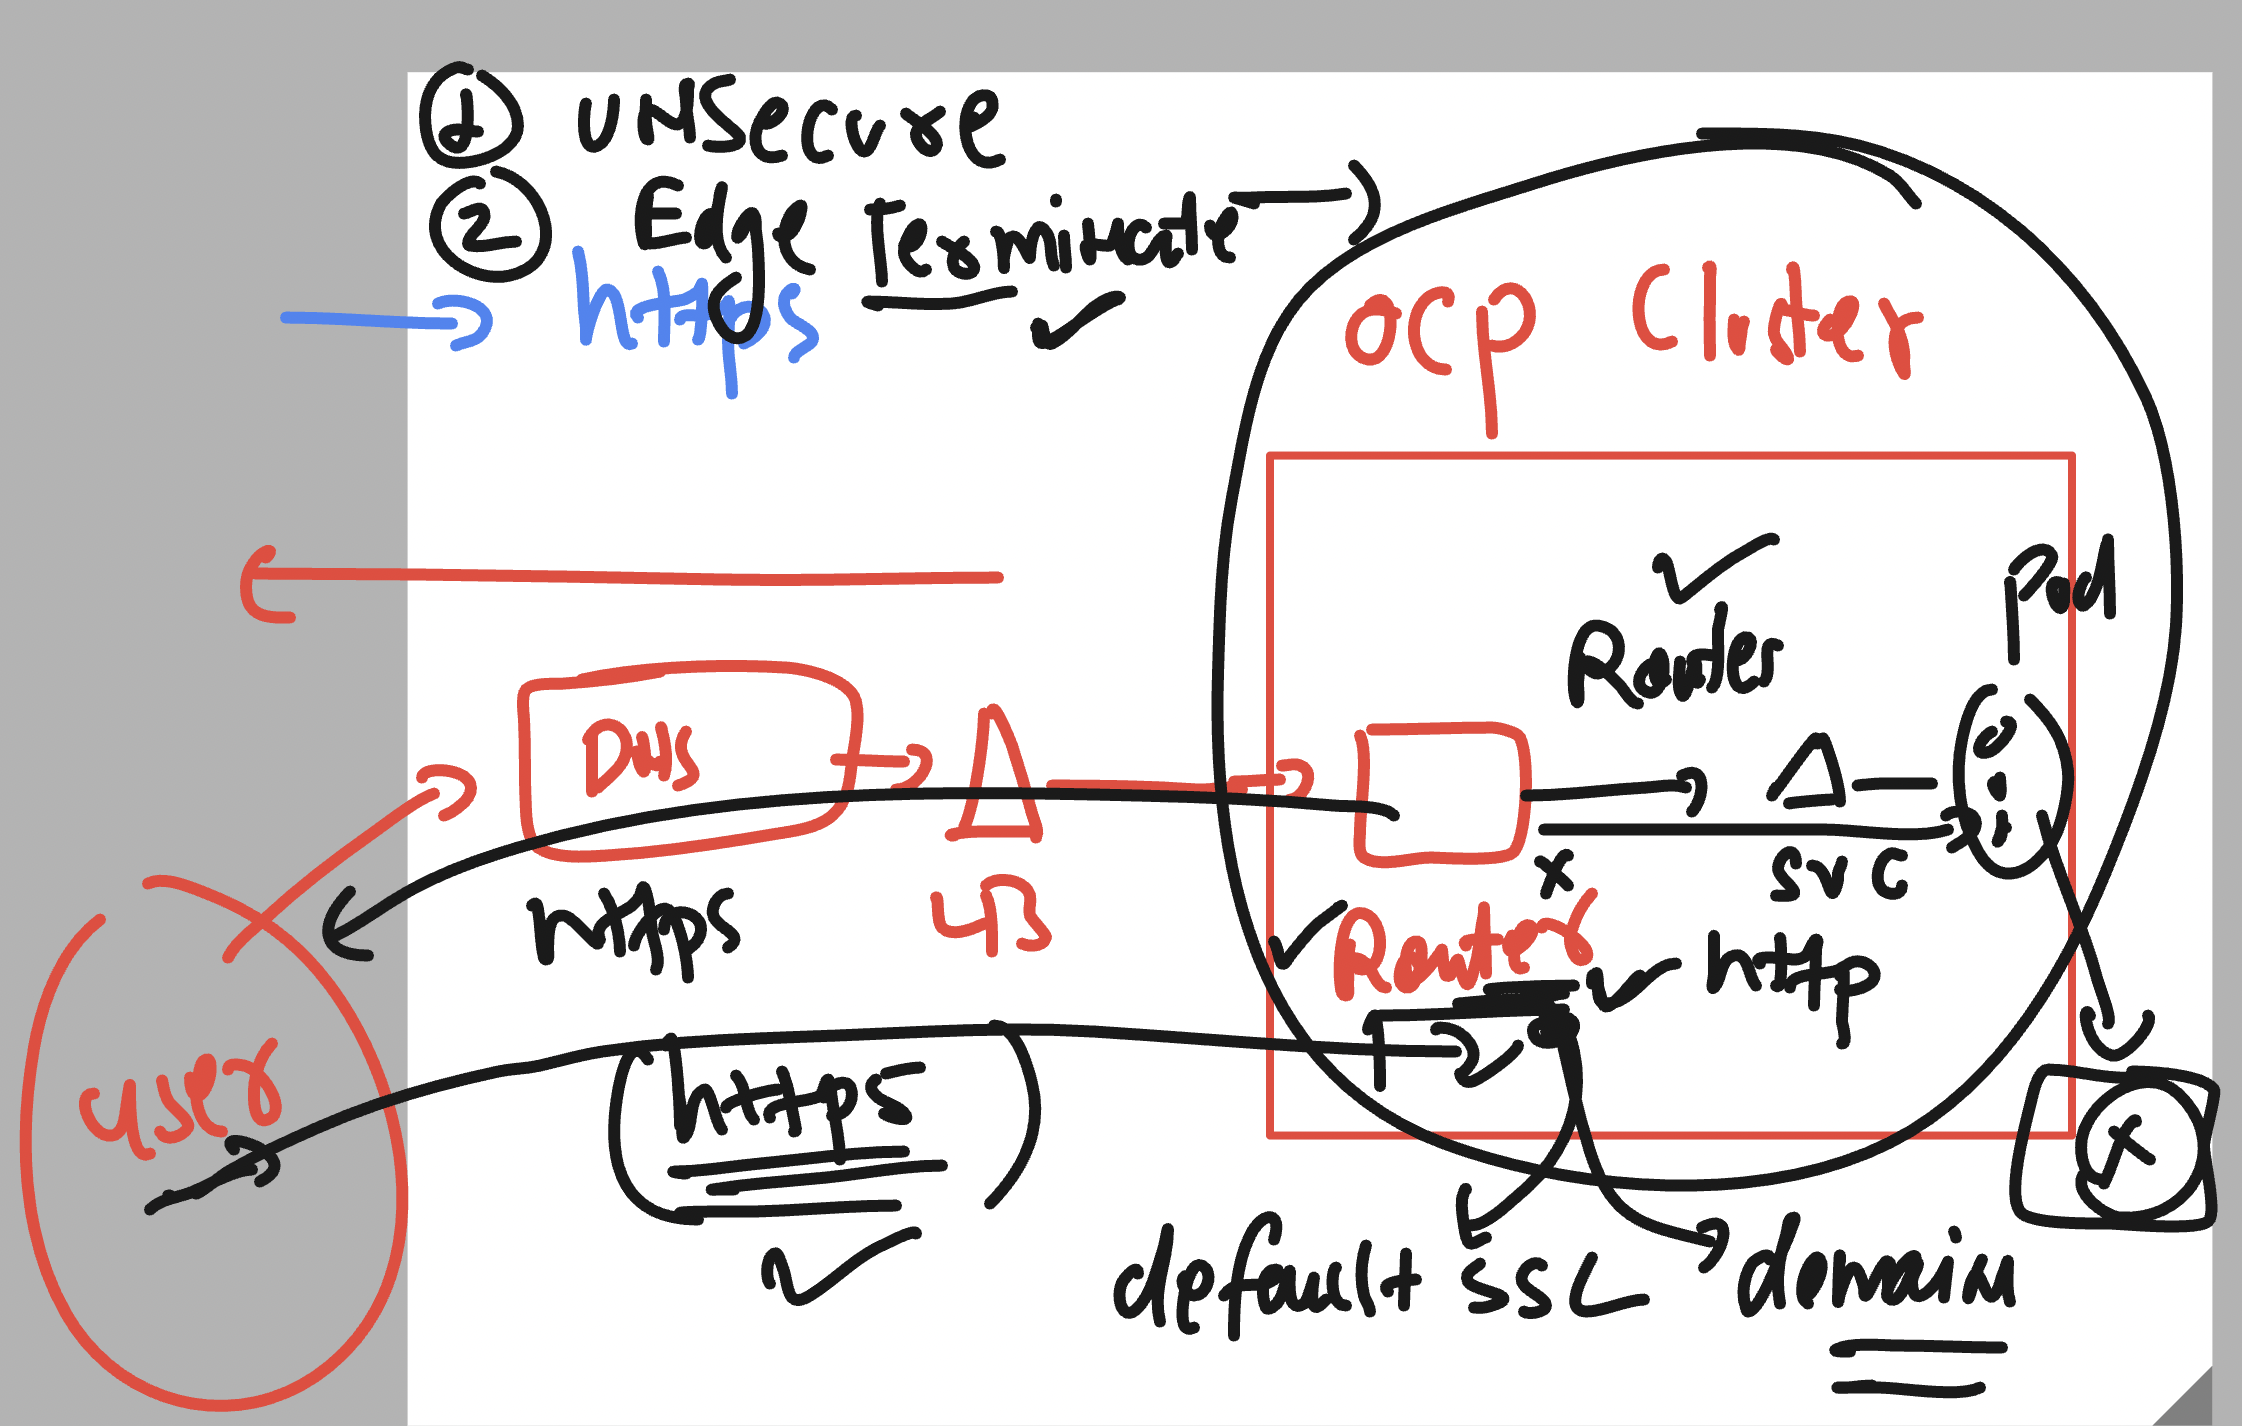 1 UNSecure
2 Edge Terminate
https
OCP Cluster
Pod
Router
DNS
https
svc
Router
http
user
https
default SSL
domain